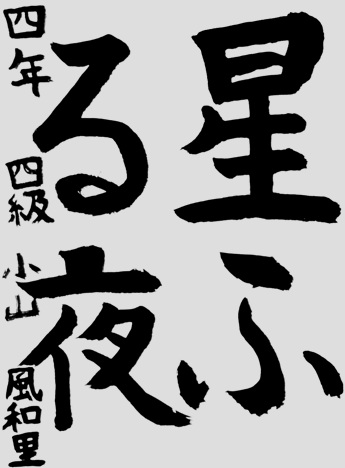 星ふ
る夜
四年 四級 小山 風和里